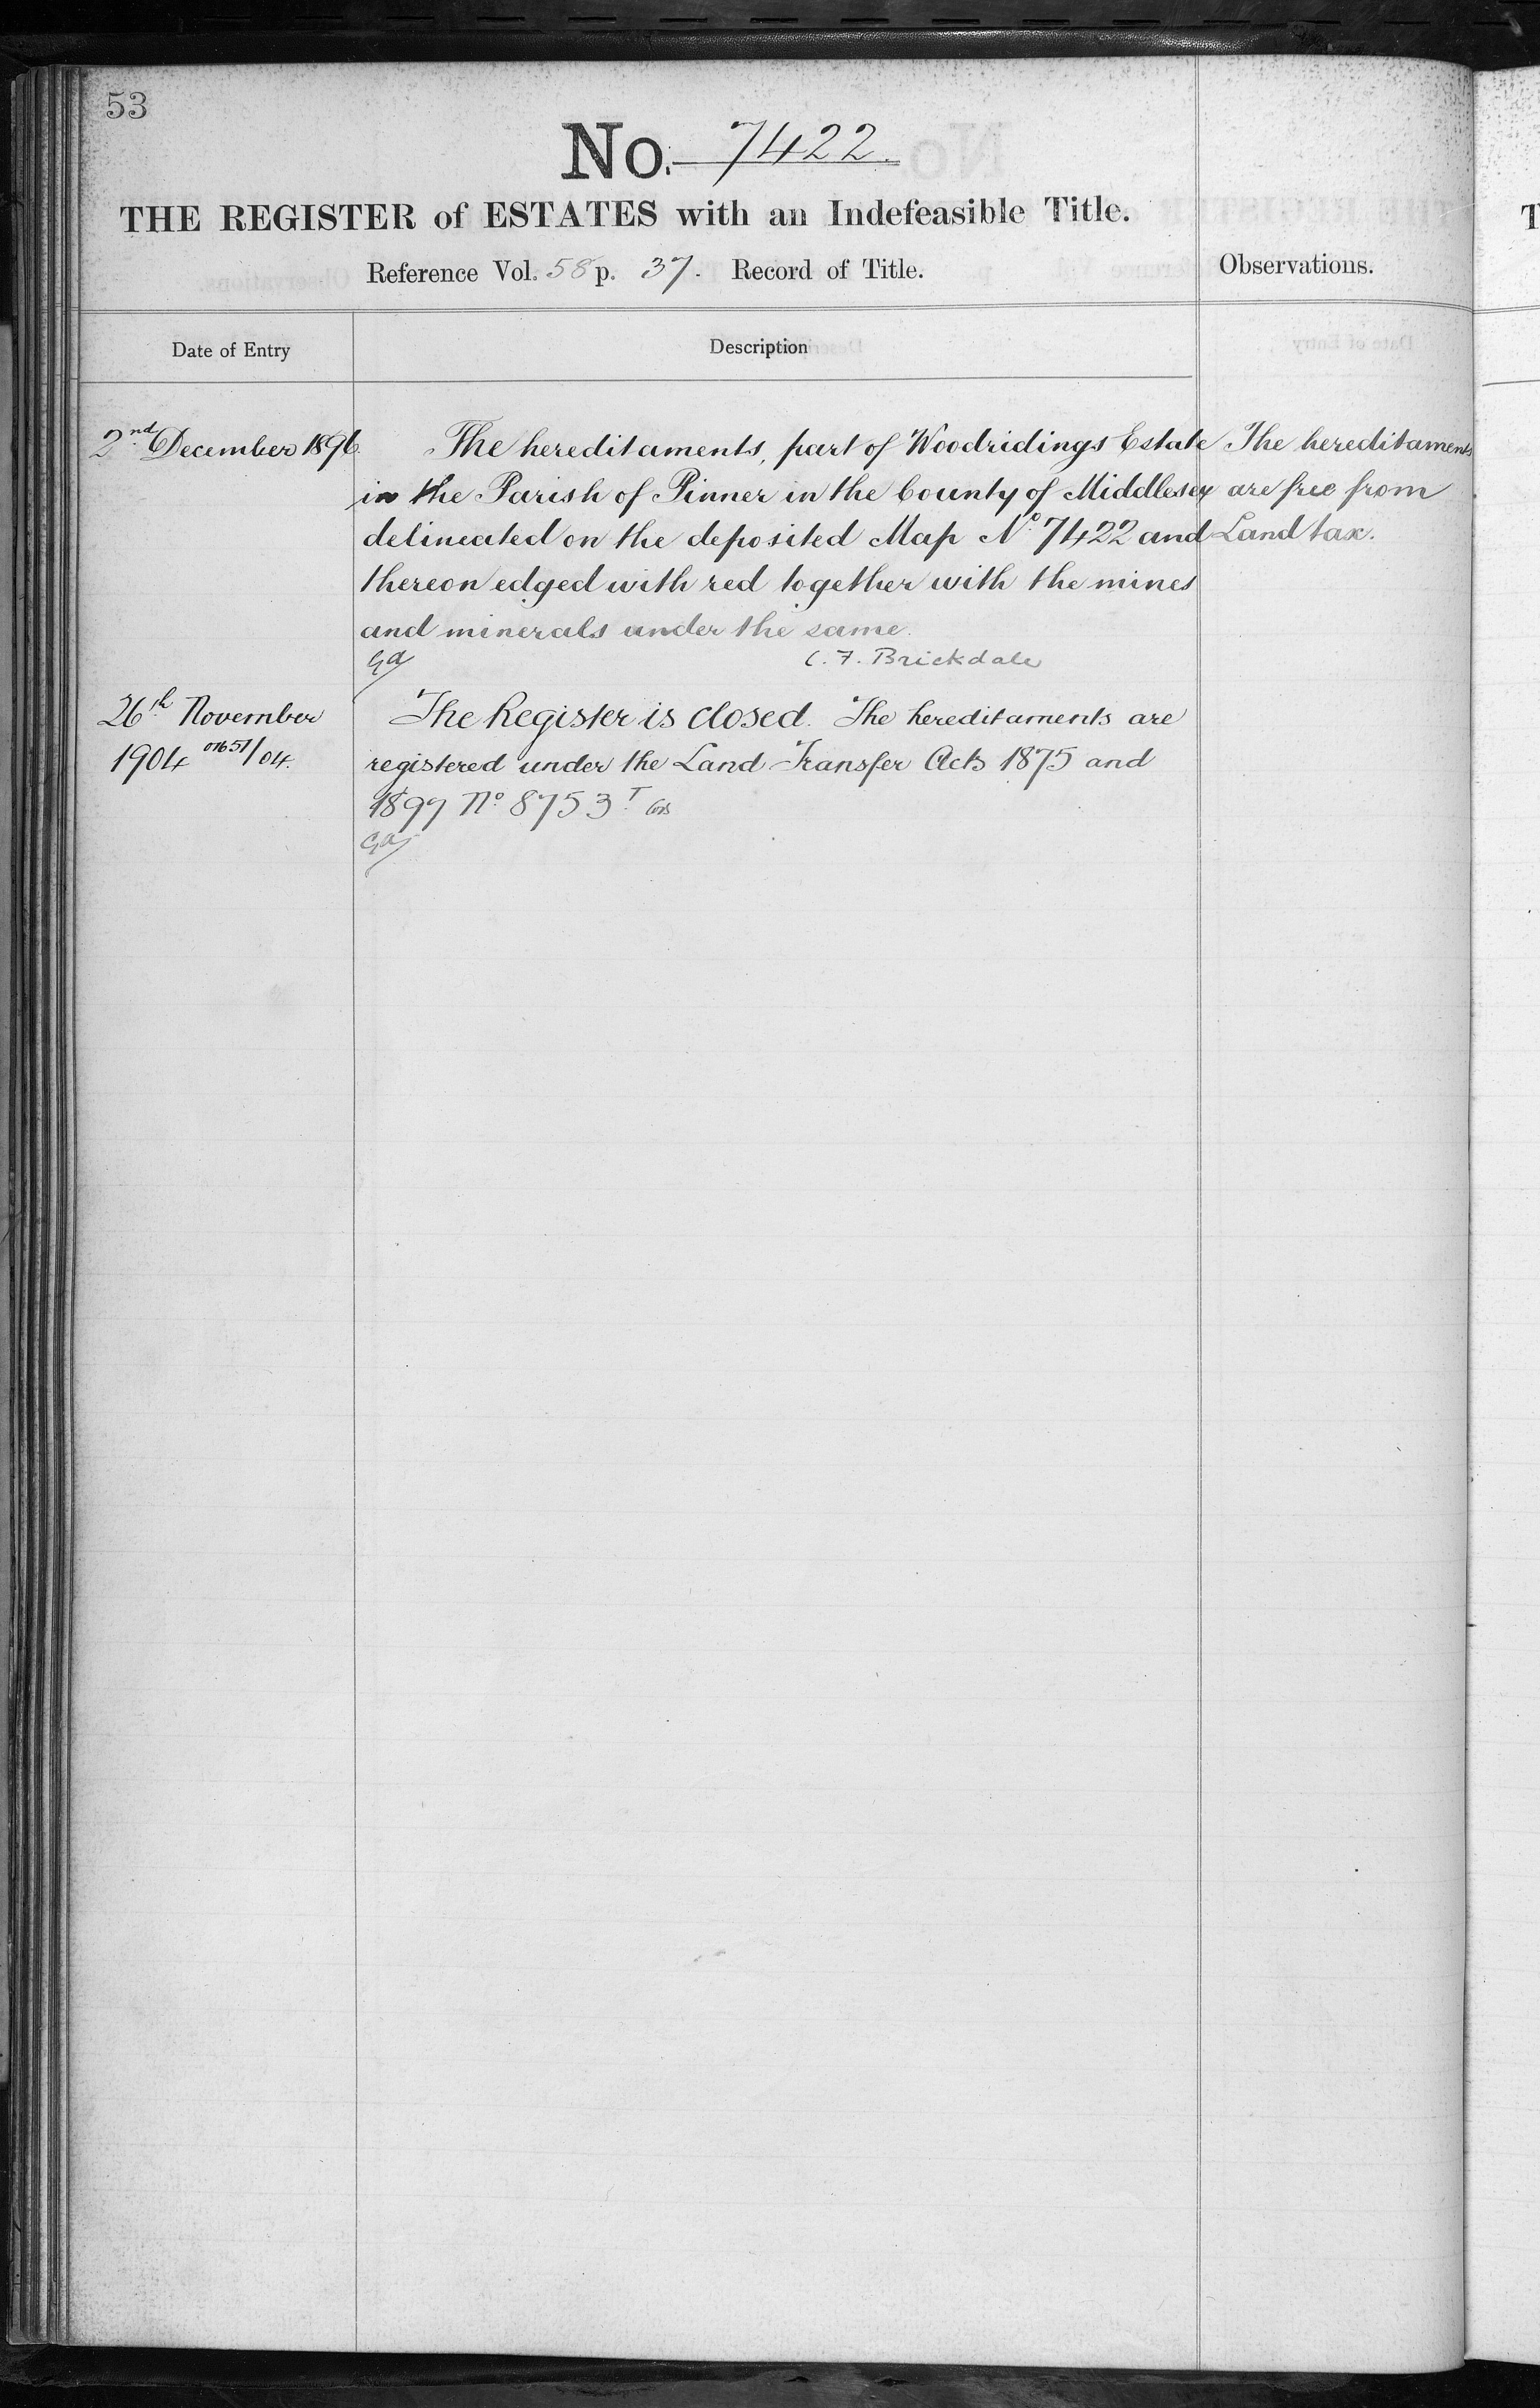 53
No. 7422.
THE REGISTER of ESTATES with an Indefeasible Title.
Reference Vol. 58 p. 37. Record of Title.
Observations.
Date of Entry
Description
2nd December 1896.
The hereditaments, part of Woodridings Estate
in the Parish of Pinner in the County of Middlesex
delineated on the deposited Map No. 7422 and
thereon edged with red together with the mines
and minerals under the same.
C. F. Brickdale
The hereditaments
are free from
Land tax.
26th November
1904
/04.
The Register is closed. The hereditaments are
registered under the Land Transfer Acts 1875 and
1897 No 8753 T